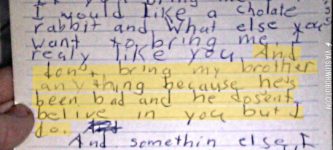 I would like a cholate
rabbit and What else you
want to bring me I
realy like you And
dont bring my brother
anything because he's
been bad and he dosent
belive in you but I
do.
And somethin else I